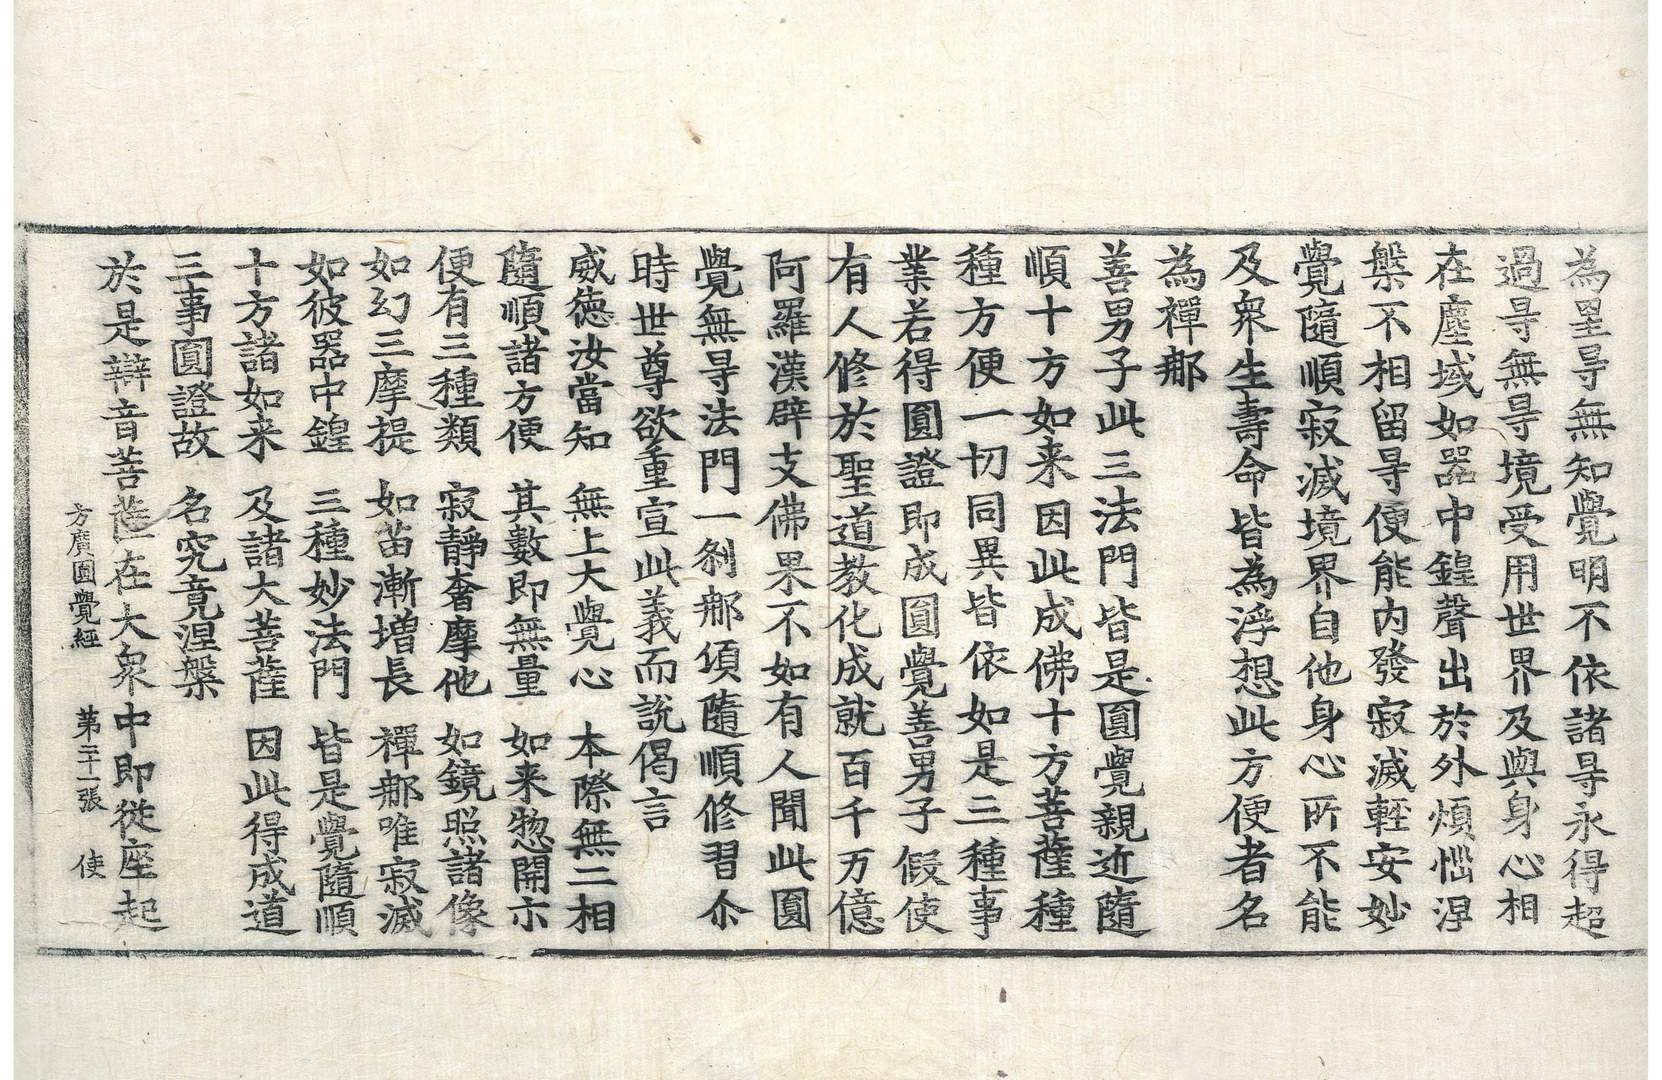 為罣㝵無知覺明不依諸㝵永得超
過㝵無㝵境受用世界及與身心相
在塵域如器中鍠聲出於外煩惱涅
槃不相留㝵便能內發寂滅輕安妙
覺隨順寂滅境界自他身心所不能
及衆生壽命皆為浮想此方便者名
為禪那
善男子此三法門皆是圓覺親近隨
順十方如来因此成佛十方菩薩種
種方便一切同異皆依如是三種事
業若得圓證即成圓覺善男子假使
有人修於聖道教化成就百千万億
阿羅漢辟支佛果不如有人聞此圓
覺無㝵法門一刹那頃隨順修習尒
時世尊欲重宣此義而說偈言
威德汝當知　無上大覺心　本際無二相
隨順諸方便　其數即無量　如来惣開示
便有三種類　寂靜奢摩他　如鏡照諸像
如幻三摩提　如苗漸增長　禪那唯寂滅
如彼器中鍠　三種妙法門　皆是覺隨順
十方諸如来　及諸大菩薩　因此得成道
三事圓證故　名究竟涅槃
於是辯音菩薩在大衆中即從座起
方廣圓覺經　第二十一張　使